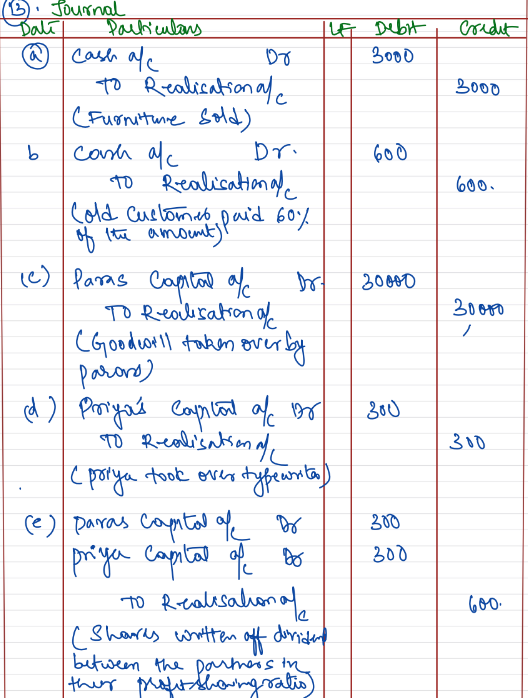 (13). Journal
Date Particulars LF Debit Credit
(a) Cash a/c Dr 3000
To Realisation a/c 3000
(Furniture Sold)
b Cash a/c Dr. 600
To Realisation a/c 600.
(old Customers paid 60%
of the amount)
(c) Paras Capital a/c Dr. 30000
To Realisation a/c 30000
(Goodwill taken over by
paras)
(d) Priya's Capital a/c Dr 300
To Realisation a/c 300
(priya took over typewriter)
(e) paras Capital a/c Dr 300
priya Capital a/c Dr 300
To Realisation a/c 600.
(Shares written off divided
between the partners in
their profit sharing ratio)